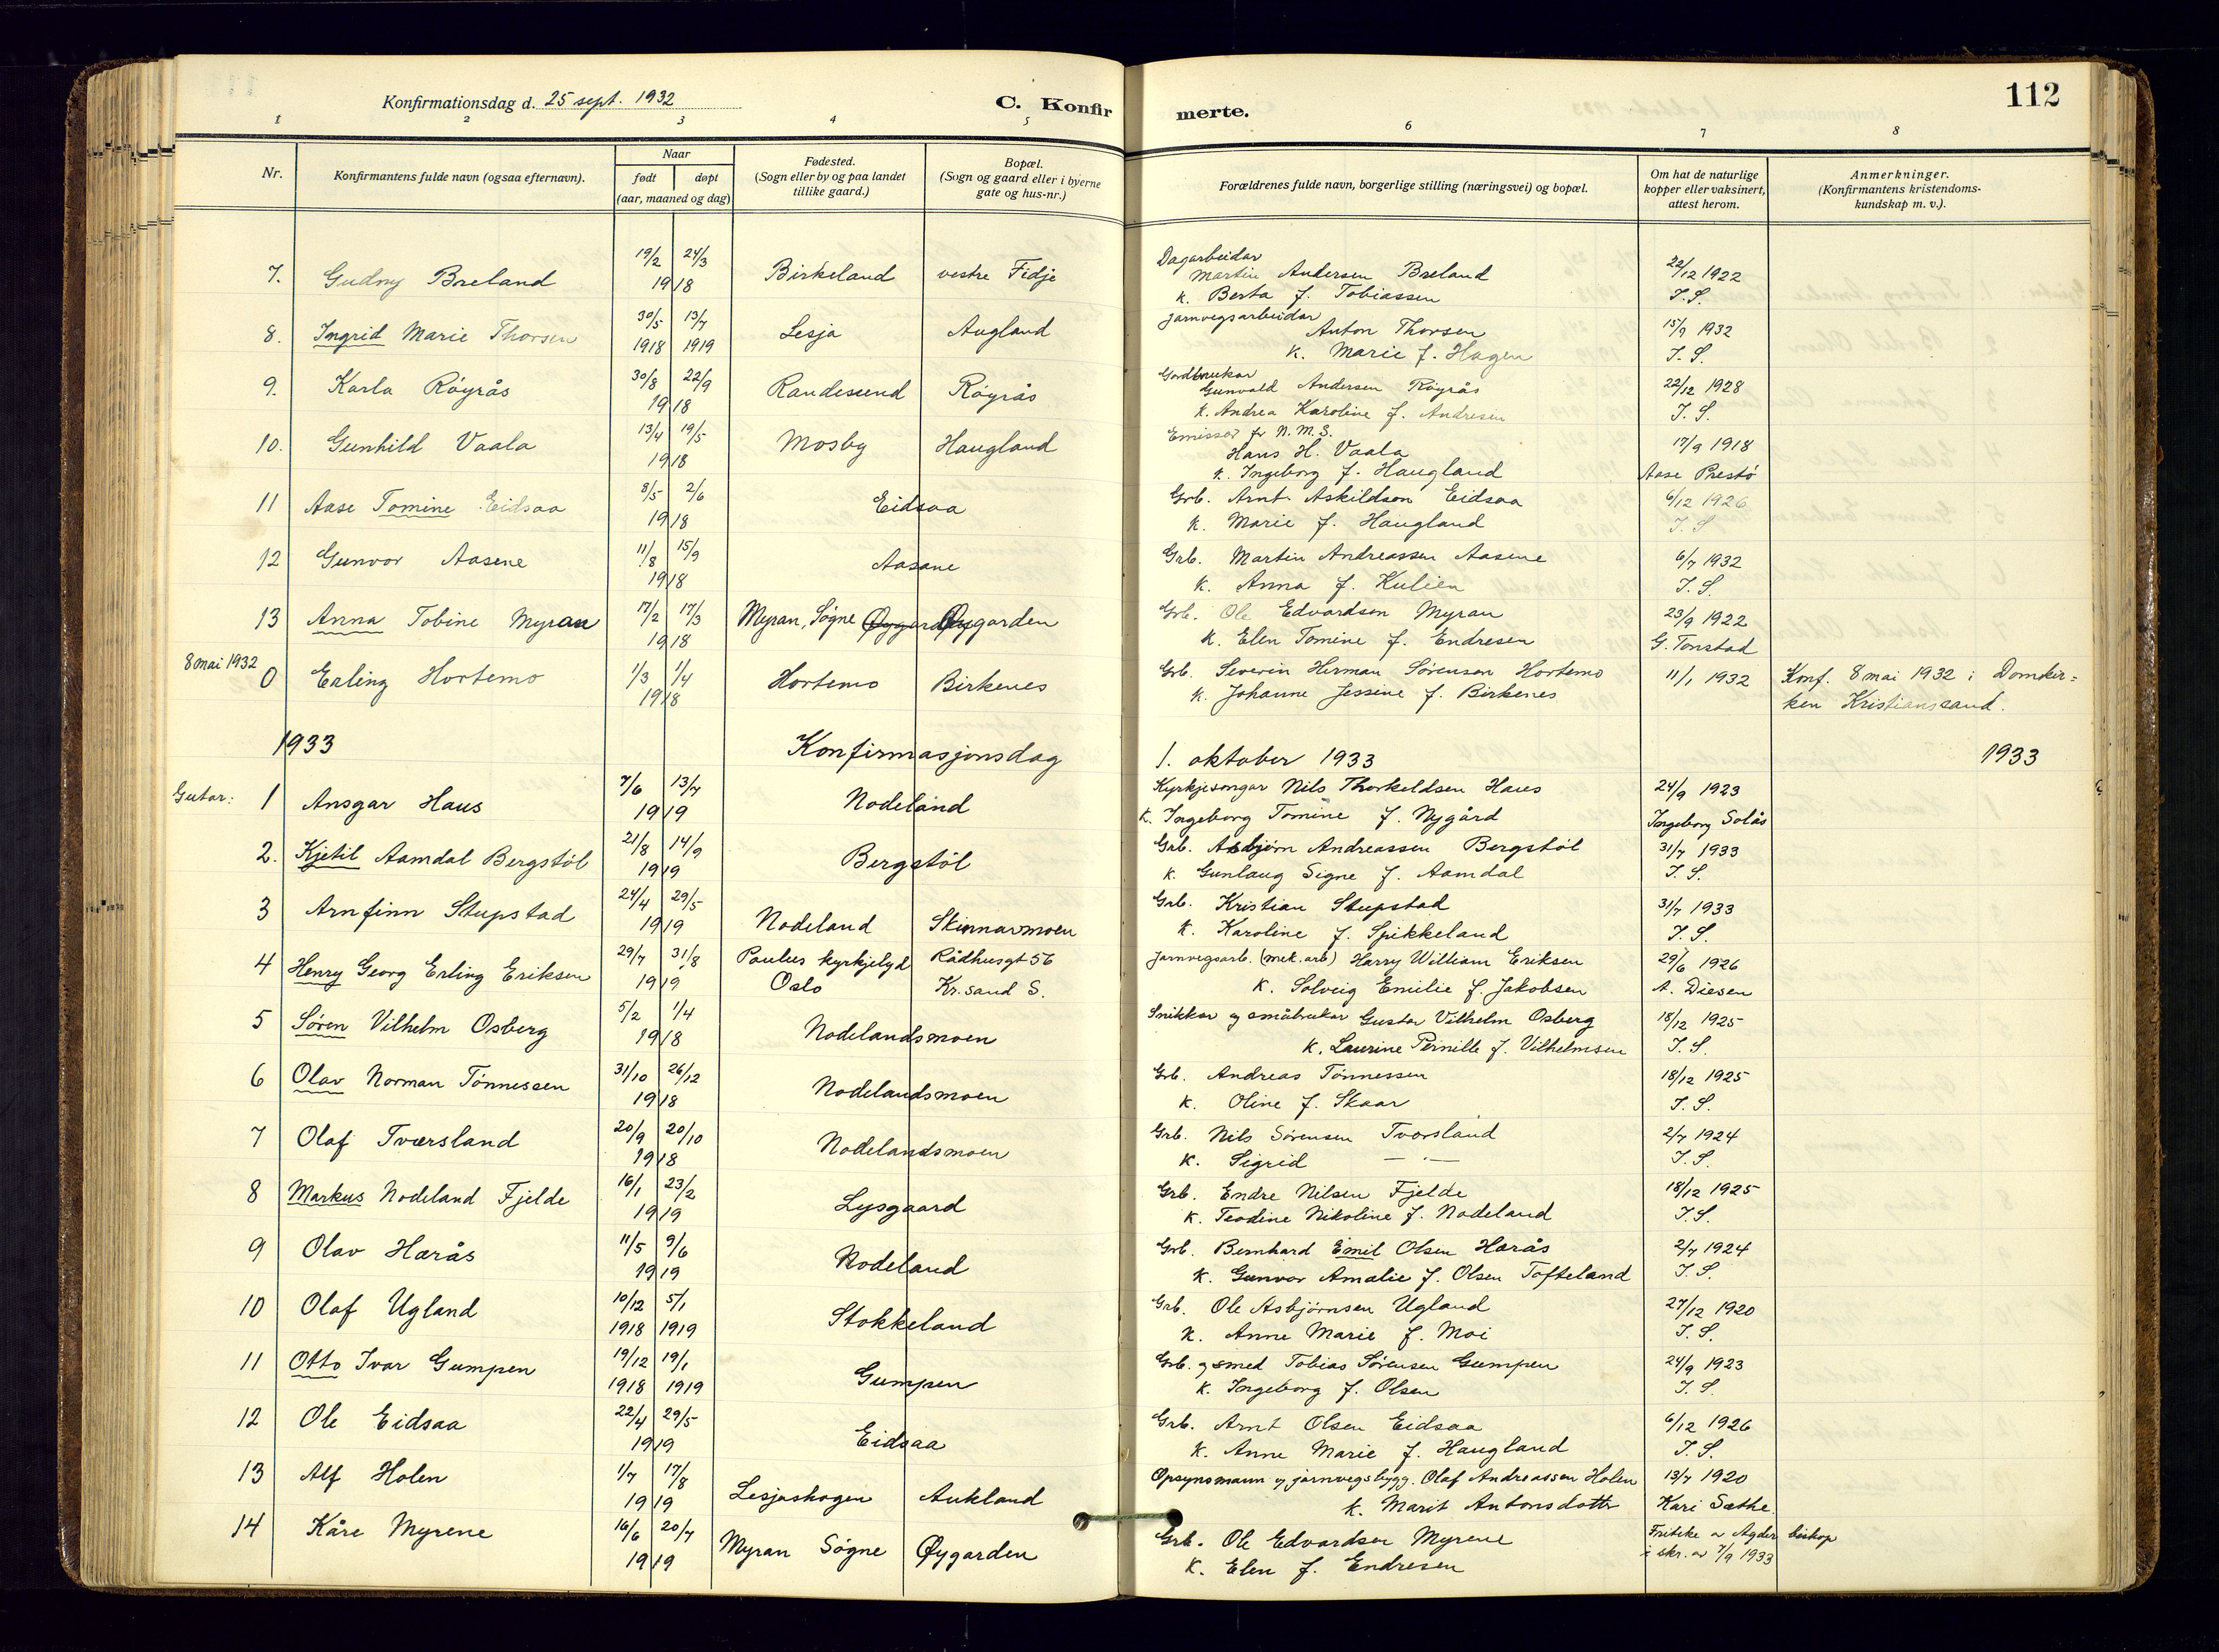 Konfirmationsdag d. 25 sept. 1932 C. Konfirmerte. 112
1 2 3 4 5 6 7 8
Nr. Konfirmantens fulde navn (ogsaa efternavn). Naar født døpt (aar, maaned og dag) Fødested. (Sogn eller by og paa landet tillike gaard.) Bopæl. (Sogn og gaard eller i byerne gate og hus-nr.) Forældrenes fulde navn, borgerlige stilling (næringsvei) og bopæl. Om hat de naturlige kopper eller vaksinert, attest herom. Anmerkninger. (Konfirmantens kristendoms-kundskap m. v.).
7. Gudny Breland 19/2 24/3 1918 Birkeland vestre Fidje Dagarbeidar Martin Andersen Breland 22/12 1922
k. Berta f. Tobiassen T.S.
8. Ingrid Marie Thorsen 30/5 1918 13/7 1919 Lesja Augland Jarnvegsarbeidar Anton Thorsen 15/9 1932
k. Marie f. Hagen T.S.
9. Karla Röyrås 30/8 22/9 1918 Randesund Röyrås Gardbrukar Gunvald Andersen Röyrås 22/12 1928
k. Andrea Karoline f. Andresen T.S.
10. Gunhild Vaala 13/4 19/5 1918 Mosby Haugland Emissær for N.M.S. Hans H. Vaala 17/9 1918
k. Ingeborg f. Haugland Aase Prestö
11 Aase Tomine Eidsaa 8/5 2/6 1918 Eidsaa Grb. Arnt Askildson Eidsaa 6/12 1926
k. Marie f. Haugland T.S
12 Gunvor Aasene 11/8 15/9 1918 Aasane Grb. Martin Andreassen Aasene 6/7 1932
k. Anna f. Kulien T.S.
13 Anna Tobine Myran 17/2 17/3 1918 Myran, Søgne Øygarden Øygarden Grb. Ole Edvardsen Myran 23/9 1922
k. Elen Tomine f. Endresen G. Tonstad
8 mai 1932 0 Erling Hortemo 1/3 1/4 1918 Hortemo Birkenes Grb. Severin Herman Sørensen Hortemo 11/1 1932 Konf. 8 mai 1932 i Domkir=
k. Johanne Jessine f. Birkenes ken Kristianssand.
1933 Konfirmasjonsdag 1. oktober 1933 1933
Gutar: 1 Ansgar Haus 7/6 13/7 1919 Nodeland Kyrkjesongar Nils Thorkeldsen Haus 24/9 1923
k. Ingeborg Tomine f. Nygård Ingeborg Solås
2. Kjetil Aamdal Bergstöl 21/8 14/9 1919 Bergstöl Grb. Asbjørn Andreassen Bergstöl 31/7 1933
k. Gunlaug Signe f. Aamdal T.S.
3 Arnfinn Stupstad 24/4 29/5 1919 Nodeland Skinnarmoen Grb. Kristian Stupstad 31/7 1933
k. Karoline f. Spikkeland T.S.
4 Henry Georg Erling Eriksen 29/7 31/8 1919 Paulus kyrkjelyd Oslo Rådhusgt 56 Kr.sand S. Jarnvegsarb. (mek. arb) Harry William Eriksen 29/6 1926
k. Solveig Emilie f. Jakobsen A. Diesen
5 Søren Vilhelm Osberg 5/2 1/4 1918 Nodelandsmoen Snikkar og småbrukar Gustav Vilhelm Osberg 18/12 1925
k. Laurine Pernille f. Vilhelmsen T.S.
6 Olav Norman Tönnessen 31/10 26/12 1918 Nodelandsmoen Grb. Andreas Tönnessen 18/12 1925
k. Oline f. Skaar T.S.
7 Olaf Tværsland 20/9 20/10 1918 Nodelandsmoen Grb. Nils Sörensen Tvorsland 2/7 1924
k. Sigrid — · — T.S.
8 Markus Nodeland Fjelde 16/1 23/2 1919 Lysgaard Grb. Endre Nilsen Fjelde 18/12 1925
k. Teodine Nikoline f. Nodeland T.S.
9 Olav Harås 11/5 9/6 1919 Nodeland Grb. Bernhard Emil Olsen Harås 2/7 1924
k. Gunvor Amalie f. Olsen Tofteland T.S.
10 Olaf Ugland 10/12 1918 5/1 1919 Stokkeland Grb. Ole Asbjørnsen Ugland 27/12 1920
k. Anne Marie f. Moi T.S.
11 Otto Ivar Gumpen 19/12 1918 19/1 1919 Gumpen Grb. og smed Tobias Sörensen Gumpen 24/9 1923
k. Ingeborg f. Olsen T.S.
12 Ole Eidsaa 22/4 29/5 1919 Eidsaa Grb. Arnt Olsen Eidsaa 6/12 1926
k. Anne Marie f. Haugland T.S.
13 Alf Holen 1/7 17/8 1919 Lesjaskogen Aukland Opsynsmann og jarnvegsbygg. Olaf Andreassen Holen 13/7 1920
k. Marit Antonsdottr Kari Sæthe
14 Kåre Myrene 16/6 20/7 1919 Myran Søgne Øygarden Grb. Ole Edvardsen Myrene Friteke av Agder biskop
k. Elen f. Endresen i skr. av 7/9 1933